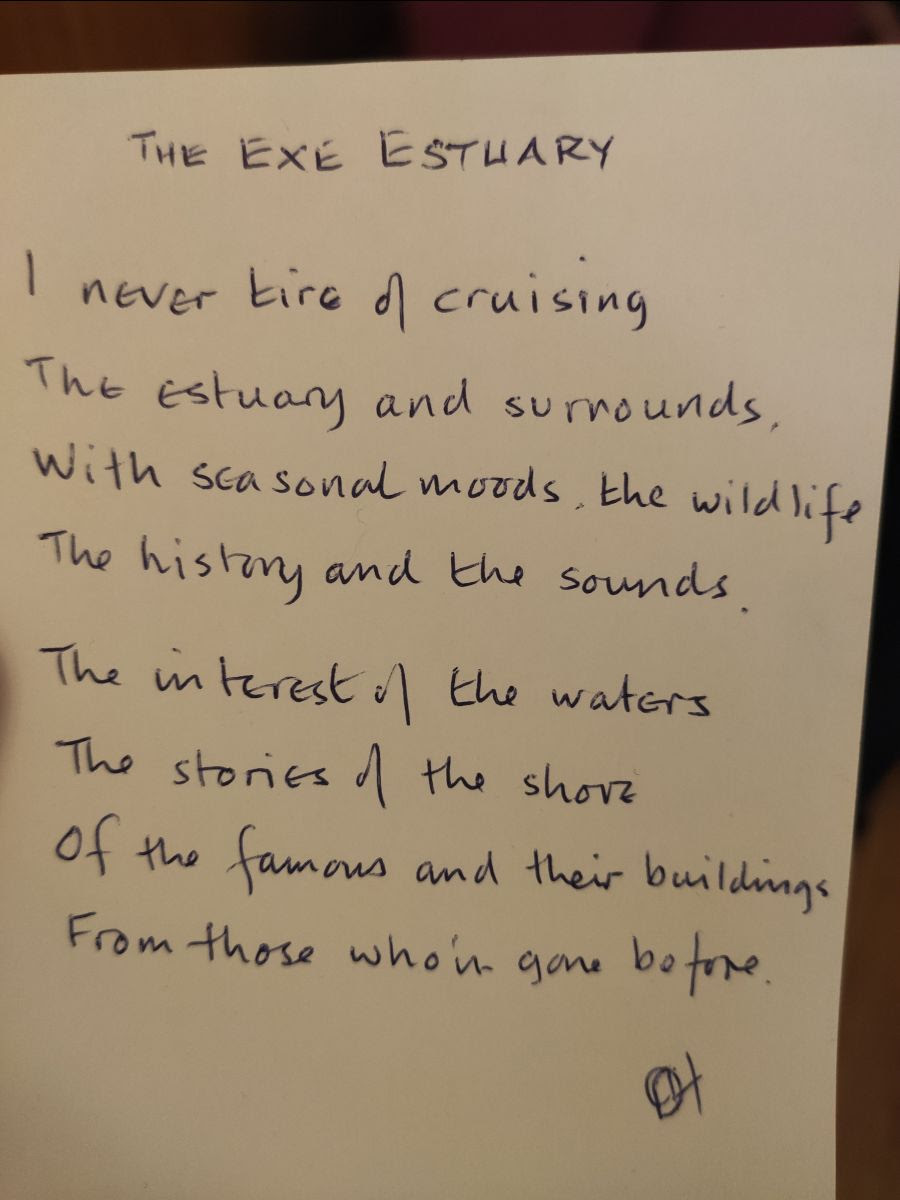 THE EXE ESTUARY
I never tire of cruising
The estuary and surrounds,
With seasonal moods, the wildlife
The history and the sounds.
The interest of the waters
The stories of the shore
Of the famous and their buildings
From those who've gone before.